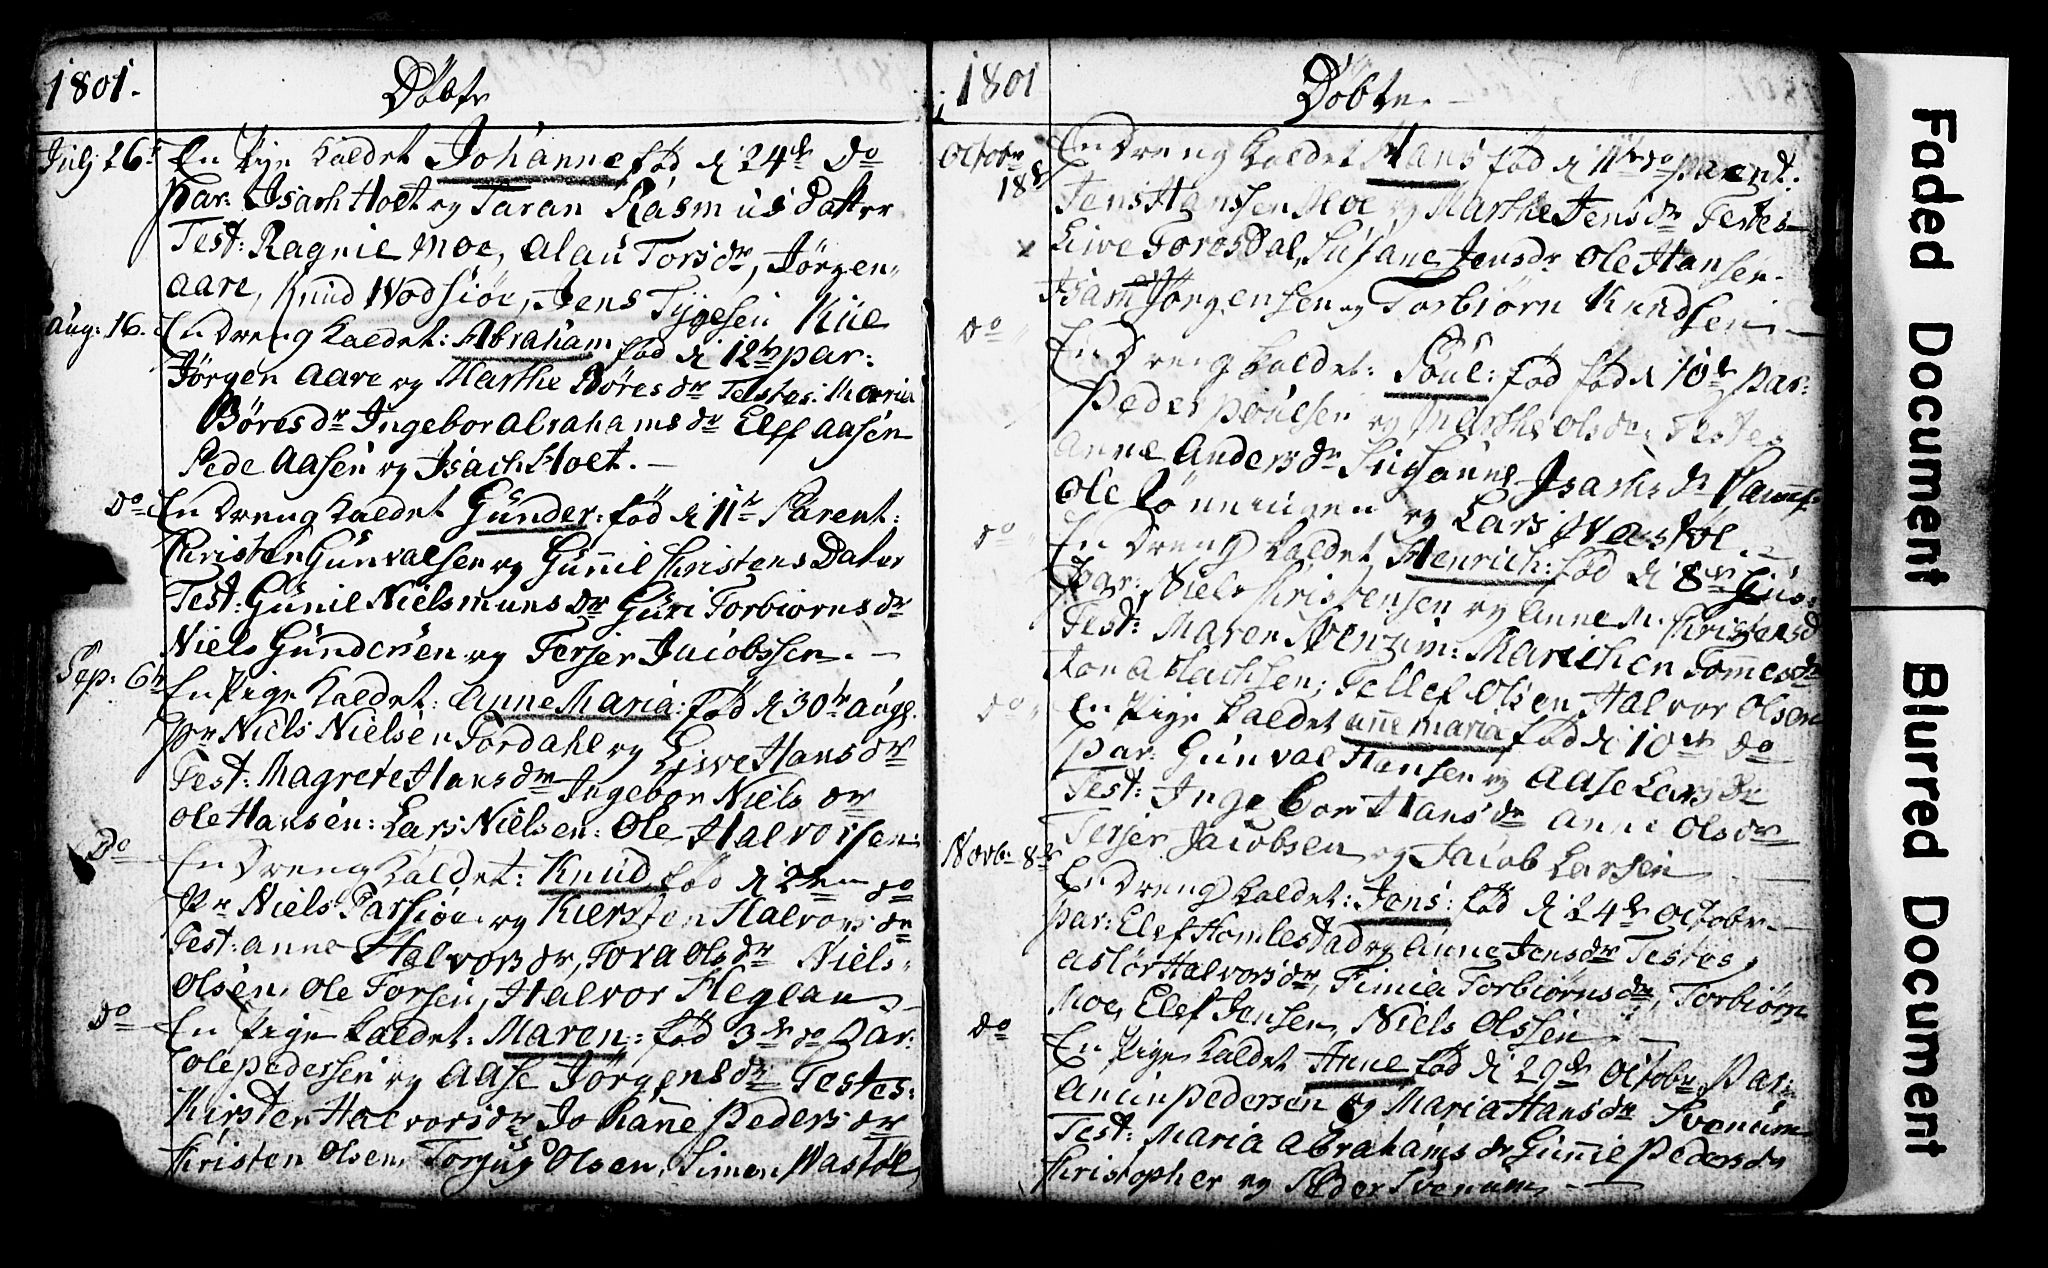 1801.
Döbte
July 26de En Pige kaldet Johanne fød d 24de do
par: Isach Holt og Taran Rasmus datter
Test: Ragnil Moe, Alau Torsdr, Jörgen
aare, Knud Wodsiöe, Jens Tÿgesen Kile
Aug: 16. En Dreng kaldet: Abraham fød d 12te par:
Jörgen aare og Marthe Böresdr Testes: Maria
Böresdr Ingebor abrahamsdr Elef aasen
Pede Aasen og Isach Holt. —
Do En Dreng kaldet Günder: fød d 11te Parent:
Christen Günvalsen og Gunnil Christens Dater
Test: Günil Nielsmunsdr Güri Torbiörnsdr
Niels Gündersen og Terjer Jacobssen. —
Sep: 6te En Pige kaldet: Anne Maria: fød d 30te Augl.
pr Niels Nielsen Fordahl og Lisve Hansdr
Test: Magrete Hansdr Ingebor Nielsdr
Ole Hansen: Lars Nielsen: Ole Halvorsen
Do En Dreng kaldet: Knud fød d 2den do
Pr Niels og Kiersten Halvorsdr
Test: Anne Halvorsdr, Tora Olsdr Niels
Olsen, Ole Torsen, Halvor Heglan
Do En Pige kaldet: Maren: fød 3de do Par:
Ole Pedersen og Aase Jörgensdr Testes:
Kirsten Halvorsdr Johanne Pedersdr
Christen Olsen, Torjus Olsen, Simon Wastöl
1801
Döbte. —
Octobr 18de En Dreng kaldet Hans fød d 11te do parent:
Jens Hanssen Moe og Marthe Jensdr Testes
Live Forosdal, Susane Jensdr Ole Hansen.
Jörgensen og Torbiörn Knudsen —
Do En Dreng kaldet: Poül: fød fød d 10de par:
Peder Poülsen og Marthe Olsdr Testes
Anne Andersdr Susanne Isachsdr
Ole Lönningen og Lars Wastöl. —
Do En Dreng kaldet Henrich: fød d 8de
par: Niels Christensen og Anne M: Christensd
Test: Maren Marichen Tomesdr
Tellef Olsen Halvor Olsen
Do En Pige kaldet anne maria fød d 10de do
par: Günval Hansen og Aase Larsdr
Test: Ingebor Hansdr Anne Olsdr
Terjer Jacobsen og Jacob Larsen
Novb: 8de En Dreng kaldet: Jens: fød d 24de Octobr —
par: Elef Homlestad og Anne Jensdr Testes
aslör Halvorsdr, Timia Torbiörnsdr, Torbiörn
Moe, Elef Jensen, Niels Olssen —
Do En Pige kaldet Anne fød d 29de Octobr. Par:
Anun Pedersen og Maria Hansdr Svenum
Test: Maria Abrahamsdr Günnil Pedersdr
Christopher og Peder Svenum —
Faded Document
Blurred Document